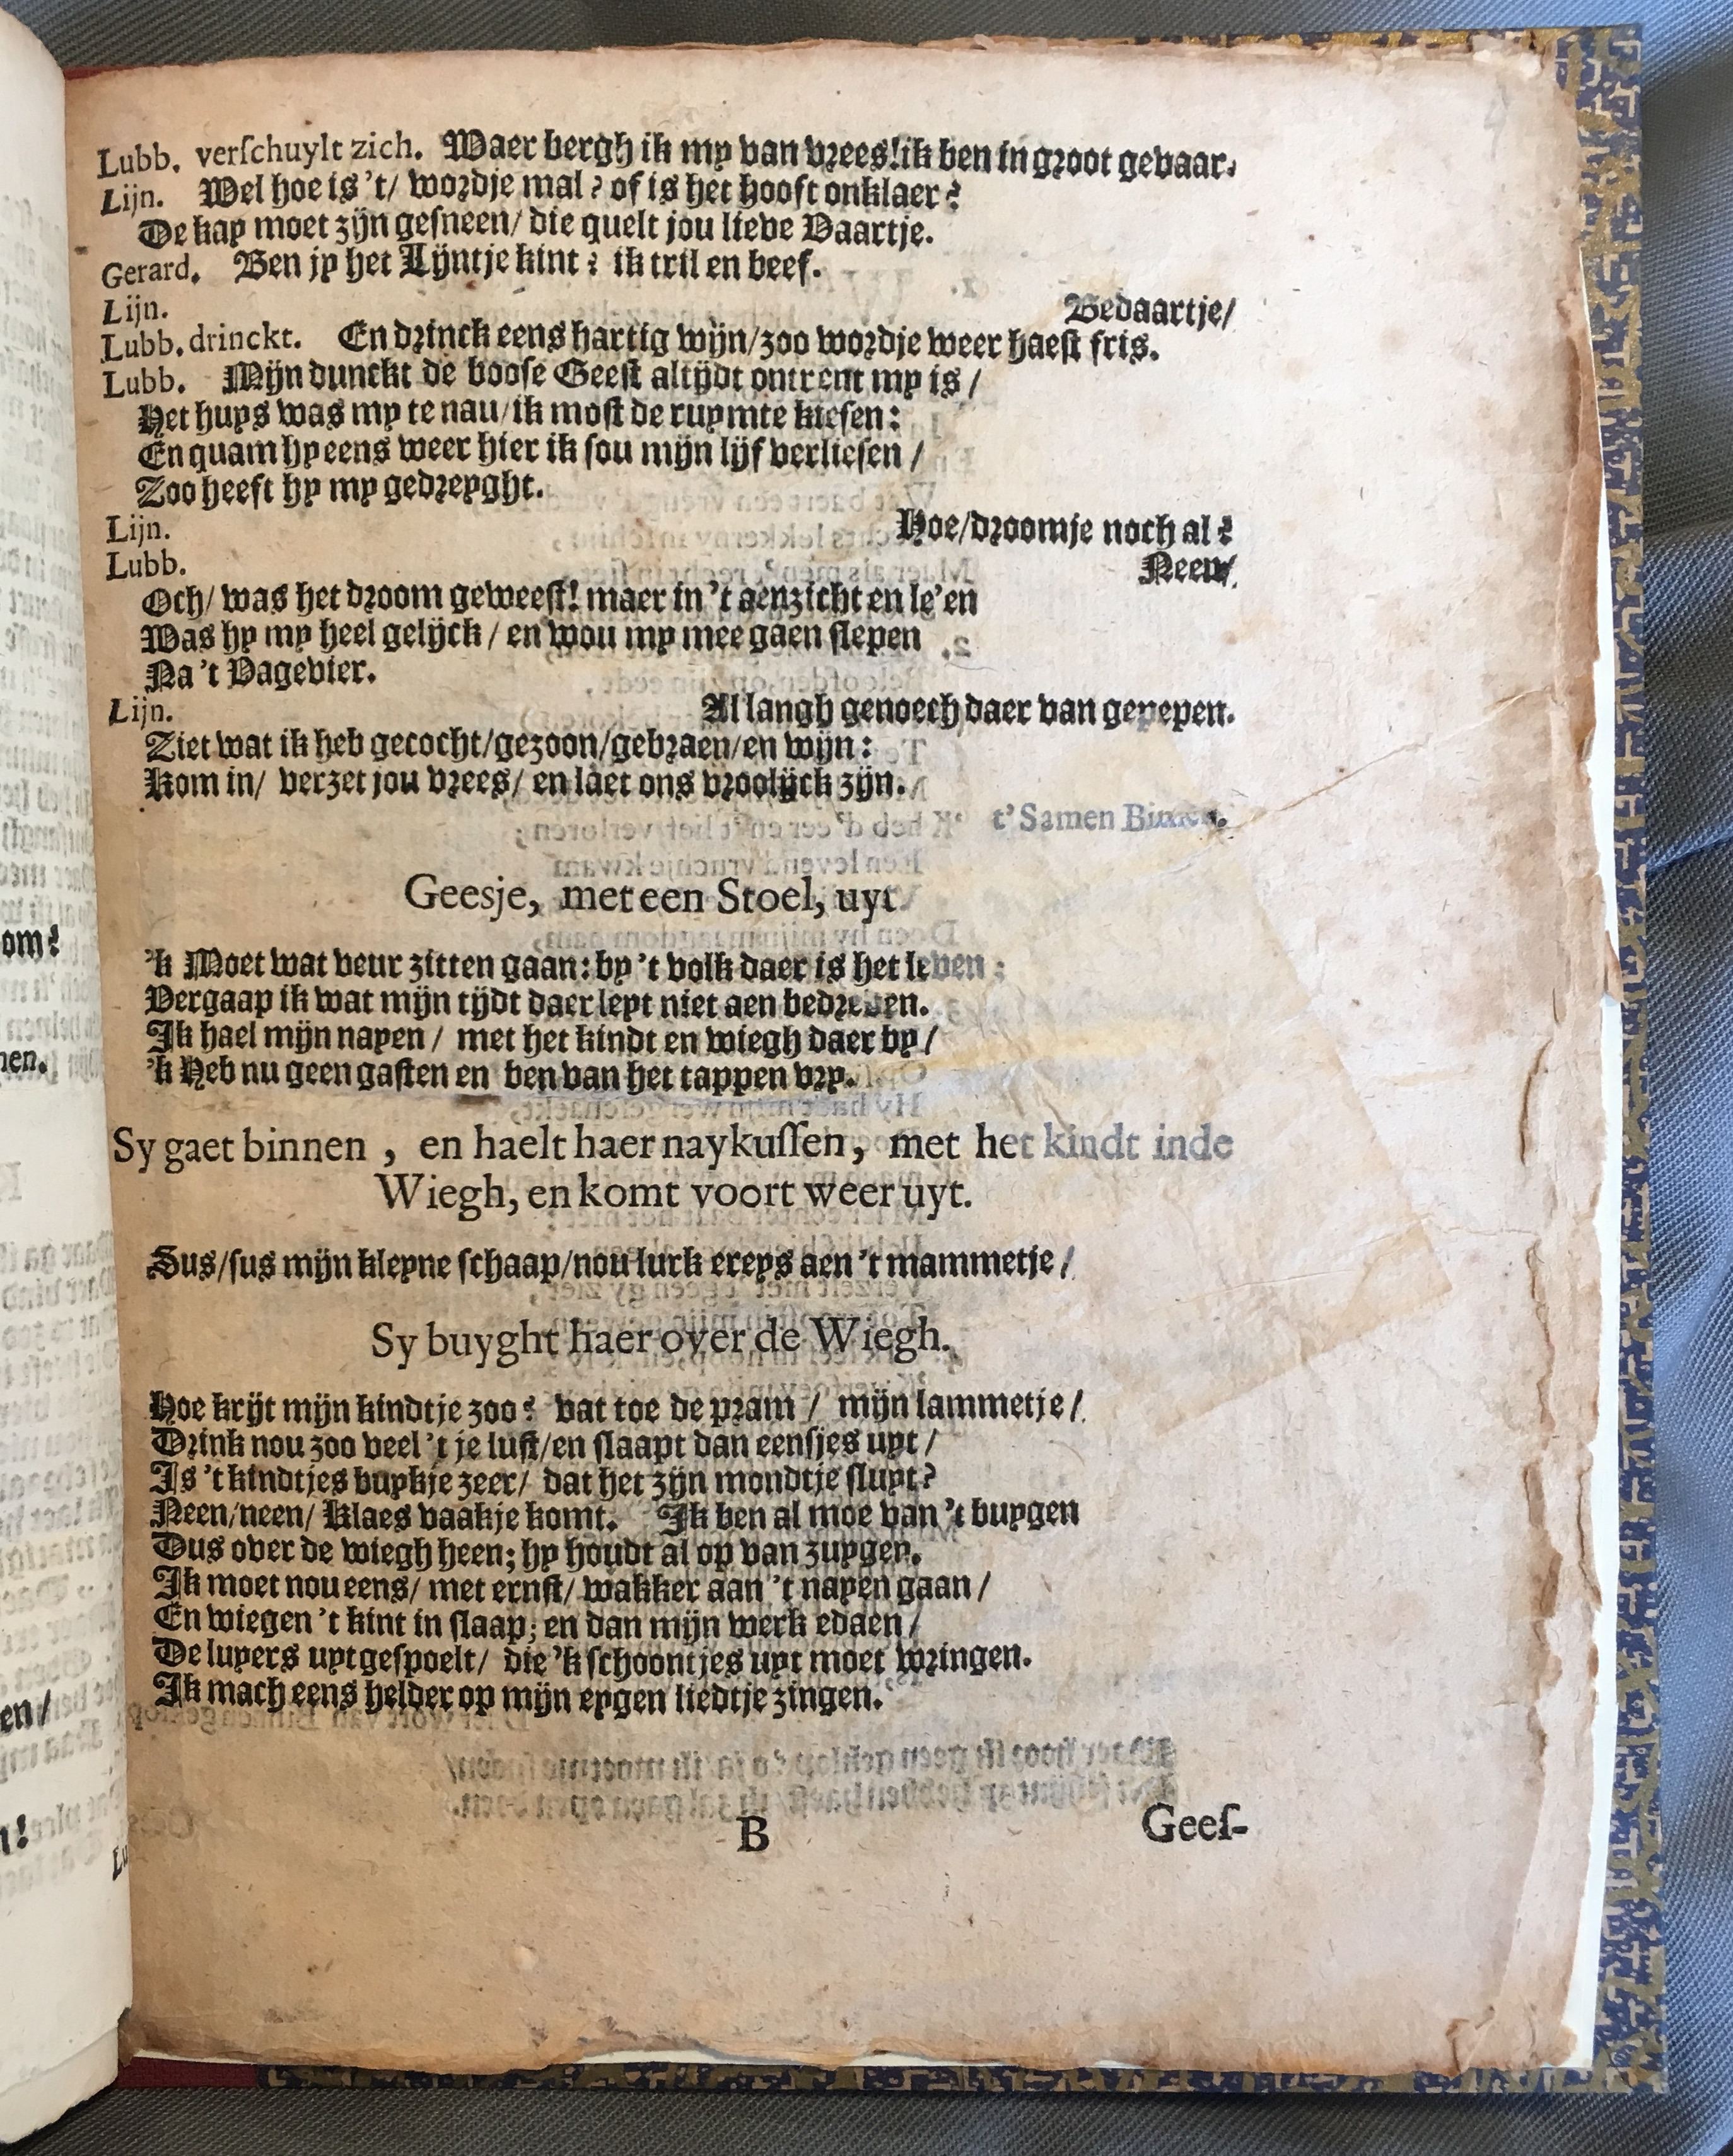 Lubb. verſchuylt zich. Waer bergh ik my van vrees! ik ben in groot gevaar.
Lijn. Wel hoe is 't/ wordje mal? of is het hooft onklaer?
De kap moet zijn geſneen/ die quelt jou lieve Vaartje.
Gerard. Ben jy het Lijntje kint? ik tril en beef.
Lijn. Bedaartje/
Lubb. drinckt. En drinck eens hartig wijn/ zoo wordje weer haeſt fris.
Lubb. Mijn dunckt de booſe Geeſt altijdt ontrent my is/
Het huys was my te nau/ ik moſt de ruymte kieſen:
En quam hy eens weer hier ik ſou mijn lijf verlieſen/
Zoo heeft hy my gedreyght.
Lijn. Hoe/ droomje noch al?
Lubb. Neen/
Och/ was het droom geweeſt! maer in 't aenzicht en le'en
Was hy my heel gelijck/ en wou my mee gaen ſlepen
Na 't Vagevier.
Lijn. Al langh genoech daer van gepepen.
Ziet wat ik heb gecocht/ gezoon/ gebraen/ en wijn:
Kom in/ verzet jou vrees/ en laet ons vroolijck zijn.
t' Samen Binnen.
Geesje, met een Stoel, uyt.
'k Moet wat veur zitten gaan: by 't volk daer is het leven:
Vergaap ik wat mijn tijdt daer leyt niet aen bedreven.
Ik hael mijn nayen/ met het kindt en wiegh daer by/
'k Heb nu geen gaſten en ben van het tappen vry.
Sy gaet binnen, en haelt haer naykuſſen, met het kindt inde
Wiegh, en komt voort weer uyt.
Sus/ ſus mijn kleyne ſchaap/ nou lurk ereys aen 't mammetje/
Sy buyght haer over de Wiegh.
Hoe krijt mijn kindtje zoo? vat toe de pram/ mijn lammetje/
Drink nou zoo veel 't je luſt/ en ſlaapt dan eenſjes uyt/
Is 't kindtjes buykje zeer/ dat het zijn mondtje ſluyt?
Neen/ neen/ Klaes vaakje komt. Ik ben al moe van 't buygen
Dus over de wiegh heen; hy houdt al op van zuygen.
Ik moet nou eens/ met ernſt/ wakker aan 't nayen gaan/
En wiegen 't kint in ſlaap; en dan mijn werk edaen/
De luyers uytgeſpoelt/ die 'k ſchoontjes uyt moet wringen.
Ik mach eens helder op mijn eygen liedtje zingen.
B
Geeſ-